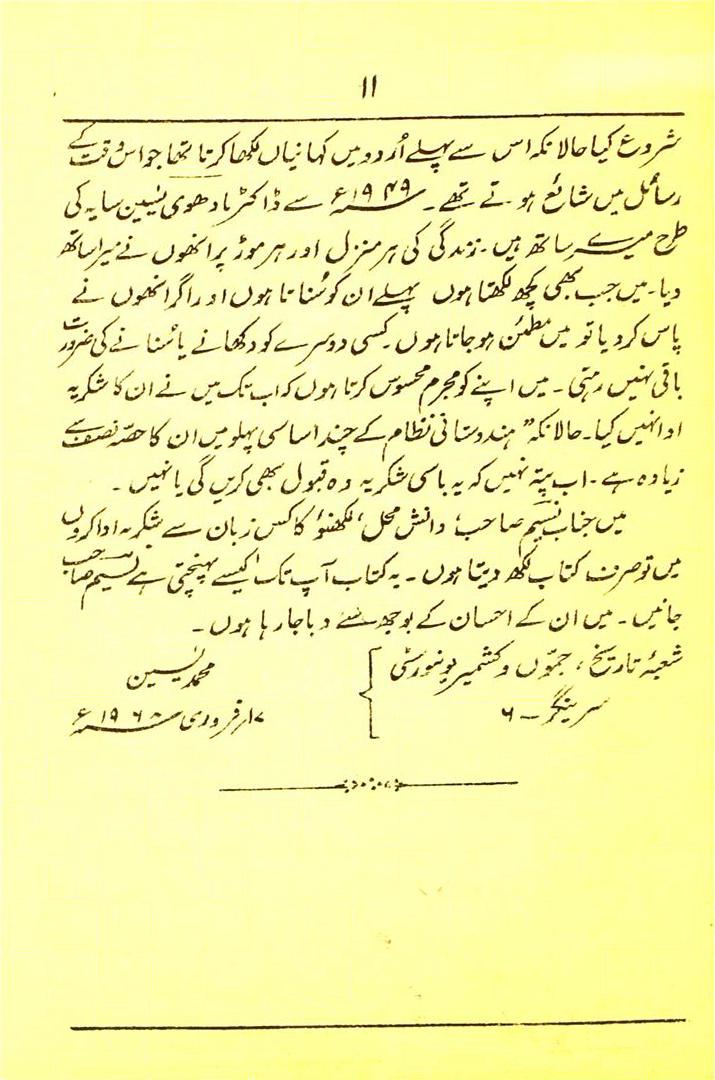 ۱۱
شروع کیا حالانکہ اس سے پہلے اُردو میں کہانیاں لکھا کرتا تھا جو اس وقت کے
رسائل میں شائع ہوتے تھے۔ ۱۹۴۹ء سے ڈاکٹر مادھوی یٰسین سایہ کی
طرح میرے ساتھ ہیں۔ زندگی کی ہر منزل اور ہر موڑ پر انھوں نے میرا ساتھ
دیا۔ میں جب بھی کچھ لکھتا ہوں پہلے ان کو سُناتا ہوں اور اگر انھوں نے
پاس کر دیا تو میں مطمئن ہو جاتا ہوں۔ کسی دوسرے کو دکھانے یا سُنانے کی ضرورت
باقی نہیں رہتی۔ میں اپنے کو مجرم محسوس کرتا ہوں کہ اب تک میں نے ان کا شکریہ
ادا نہیں کیا۔ حالانکہ ”ہندوستانی نظام کے چند اساسی پہلو میں ان کا حصّہ نصف سے
زیادہ ہے۔ اب پتہ نہیں کہ یہ باسی شکریہ وہ قبول بھی کریں گی یا نہیں۔
میں جناب نسیم صاحب، دانش محل، لکھنؤ کا کس زبان سے شکریہ ادا کروں
میں تو صرف کتاب لکھ دیتا ہوں۔ یہ کتاب آپ تک کیسے پہنچتی ہے نسیم صاحب
جانیں۔ میں ان کے احسان کے بوجھ سے دبا جا رہا ہوں۔
شعبۂ تاریخ، جمّوں و کشمیر یونیورسٹی
سرینگر ۔ ۶
محمد یٰسین
۱۷ فروری ۱۹۶۸ء